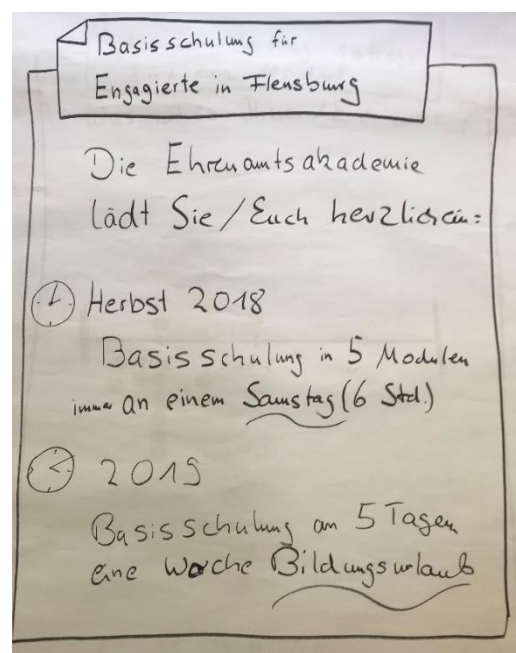 Basisschulung für
Engagierte in Flensburg
Die Ehrenamtsakademie
lädt Sie / Euch herzlich ein:
Herbst 2018
Basisschulung in 5 Modulen
immer an einem Samstag (6 Std.)
2019
Basisschulung an 5 Tagen
eine Woche Bildungsurlaub